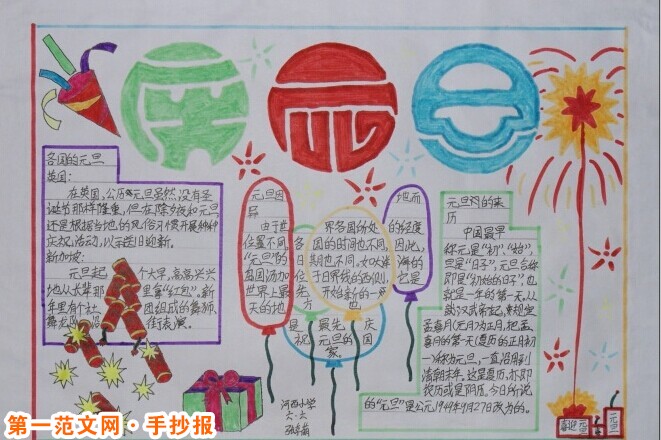 庆元旦
各国的元旦
英国:
在英国,公历元旦虽然,没有圣
诞节那样隆重,但在除夕夜和元旦
还是根据当地的风俗习惯开展种种
庆祝活动,以示送旧迎新。
新加坡:
元旦 个大早,高高兴兴
地从长辈那 里拿“红包”。新
年里有个社 团组成的舞狮、
舞龙 街表演。
元旦因
地而
异
由于世
界各国所处
的经度
位置不同,
国的时间也不同,
因此,
“元旦”的
期也不同。
岛国汤加
于日界线的西侧,
海的
世界上最
开始新的一天
它是
天的
也
是
最先
庆
祝
元旦的
国
家。
元旦的来
历
中国最早
称元是“初”“始”,
旦是“日子”,元旦合称
即是“初始的日子”,也
就是一年的第一天。从
孟喜月(元月)为正月,把孟
喜月的第一天(夏历的正月初
一)称为元旦,一直沿用到
清朝末年。这是夏历,亦即
农历或是阴历。今日所说
的“元旦”是公元1949年9月27日改为的。
河西小学
六·六
喜迎元旦
元旦
第一范文网·手抄报